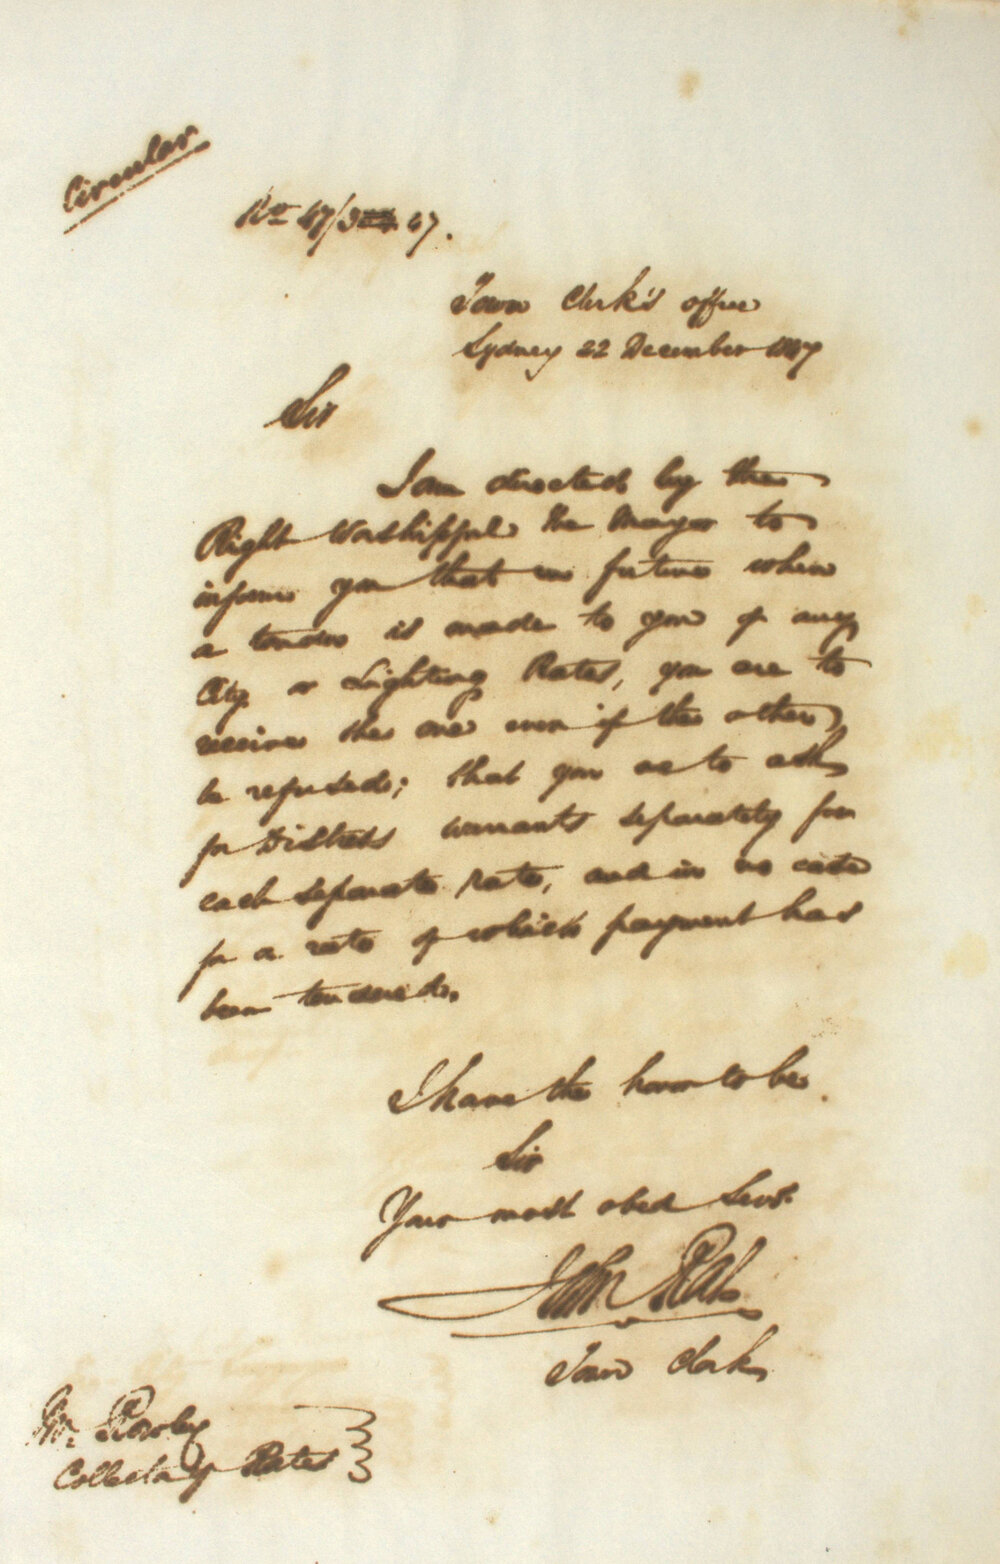 Circular
No 47/3 47.
Town Clerk's office
Sydney 22 December 1847
Sir
I am directed by the
Right Worshipful the Mayor to
inform you that in future when
a tender is made to you of any
City or Lighting Rates, you are to
receive the one even if the other
be refused; that you are to ask
for Distress warrants separately for
each separate rate, and in no case
for a rate of which payment has
been tendered.
I have the honor to be
Sir
Your most obed Servt
John Rae
Town Clerk
Mr.
Collector of Rates